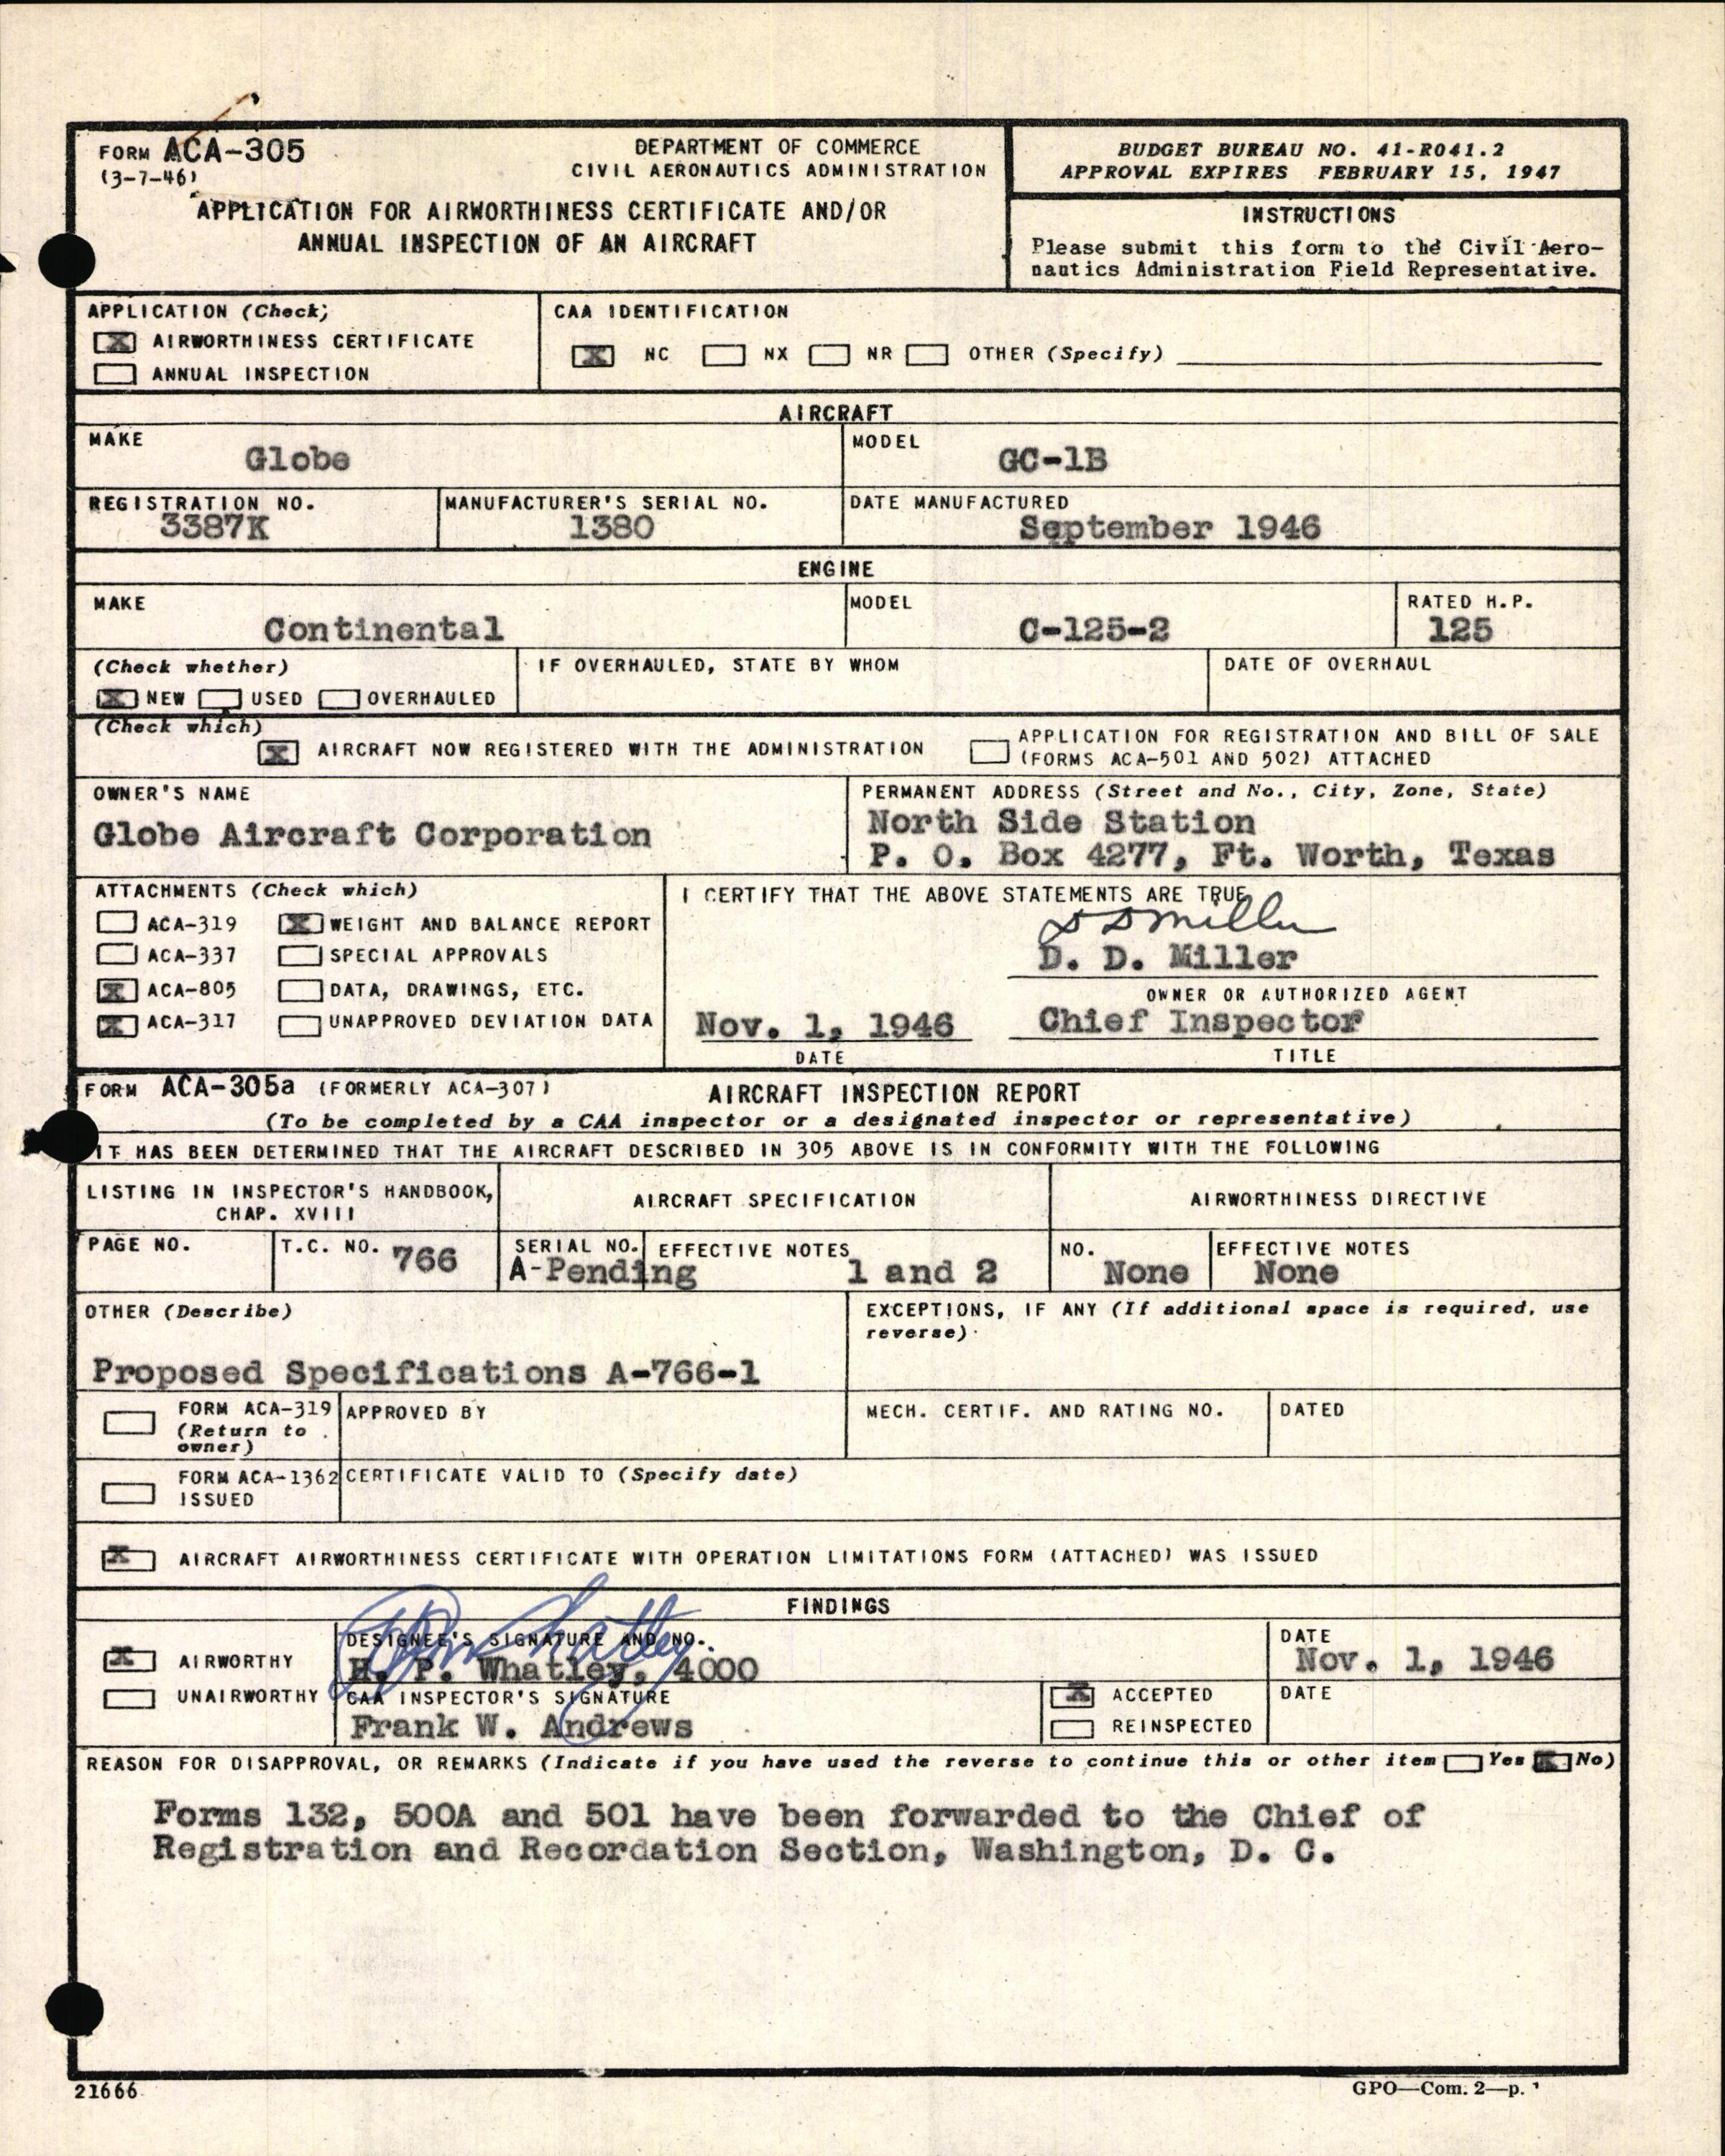 FORM ACA-305
(3-7-46)
DEPARTMENT OF COMMERCE
CIVIL AERONAUTICS ADMINISTRATION
APPLICATION FOR AIRWORTHINESS CERTIFICATE AND/OR
ANNUAL INSPECTION OF AN AIRCRAFT
BUDGET BUREAU NO. 41-R041.2
APPROVAL EXPIRES FEBRUARY 15, 1947
INSTRUCTIONS
Please submit this form to the Civil Aero-
nautics Administration Field Representative.
APPLICATION (Check)
X AIRWORTHINESS CERTIFICATE
ANNUAL INSPECTION
CAA IDENTIFICATION
X NC NX NR OTHER (Specify)
AIRCRAFT
MAKE
Globe
MODEL
GC-1B
REGISTRATION NO.
3387K
MANUFACTURER'S SERIAL NO.
1380
DATE MANUFACTURED
September 1946
ENGINE
MAKE
Continental
MODEL
C-125-2
RATED H.P.
125
(Check whether)
X NEW USED OVERHAULED
IF OVERHAULED, STATE BY WHOM
DATE OF OVERHAUL
(Check which)
X AIRCRAFT NOW REGISTERED WITH THE ADMINISTRATION
APPLICATION FOR REGISTRATION AND BILL OF SALE
(FORMS ACA-501 AND 502) ATTACHED
OWNER'S NAME
Globe Aircraft Corporation
PERMANENT ADDRESS (Street and No., City, Zone, State)
North Side Station
P. O. Box 4277, Ft. Worth, Texas
ATTACHMENTS (Check which)
ACA-319 X WEIGHT AND BALANCE REPORT
ACA-337 SPECIAL APPROVALS
X ACA-805 DATA, DRAWINGS, ETC.
X ACA-317 UNAPPROVED DEVIATION DATA
I CERTIFY THAT THE ABOVE STATEMENTS ARE TRUE
D D Miller
D. D. Miller
OWNER OR AUTHORIZED AGENT
Nov. 1, 1946
DATE
Chief Inspector
TITLE
FORM ACA-305a (FORMERLY ACA-307)
AIRCRAFT INSPECTION REPORT
(To be completed by a CAA inspector or a designated inspector or representative)
IT HAS BEEN DETERMINED THAT THE AIRCRAFT DESCRIBED IN 305 ABOVE IS IN CONFORMITY WITH THE FOLLOWING
LISTING IN INSPECTOR'S HANDBOOK,
CHAP. XVIII
AIRCRAFT SPECIFICATION
AIRWORTHINESS DIRECTIVE
PAGE NO.
T.C. NO. 766
SERIAL NO.
A-Pending
EFFECTIVE NOTES
1 and 2
NO.
None
EFFECTIVE NOTES
None
OTHER (Describe)
Proposed Specifications A-766-1
EXCEPTIONS, IF ANY (If additional space is required, use
reverse)
FORM ACA-319
(Return to
owner)
APPROVED BY
MECH. CERTIF. AND RATING NO.
DATED
FORM ACA-1362
ISSUED
CERTIFICATE VALID TO (Specify date)
X AIRCRAFT AIRWORTHINESS CERTIFICATE WITH OPERATION LIMITATIONS FORM (ATTACHED) WAS ISSUED
FINDINGS
X AIRWORTHY
UNAIRWORTHY
DESIGNEE'S SIGNATURE AND NO.
H. P. Whatley, 4000
DATE
Nov. 1, 1946
CAA INSPECTOR'S SIGNATURE
Frank W. Andrews
X ACCEPTED
REINSPECTED
DATE
REASON FOR DISAPPROVAL, OR REMARKS (Indicate if you have used the reverse to continue this or other item Yes X No)
Forms 132, 500A and 501 have been forwarded to the Chief of
Registration and Recordation Section, Washington, D. C.
21666
GPO—Com. 2—p.